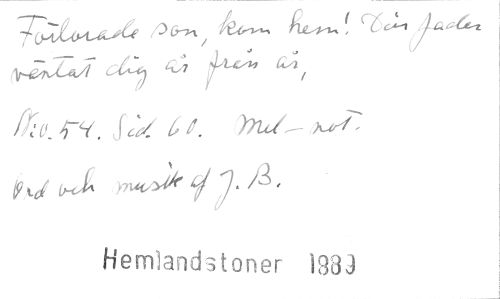 Förlorade son, kom hem! Din fader
väntat dig år från år,
N:o. 54. Sid. 60. Mel-not.
Ord och musik af J. B.
Hemlandstoner 1889